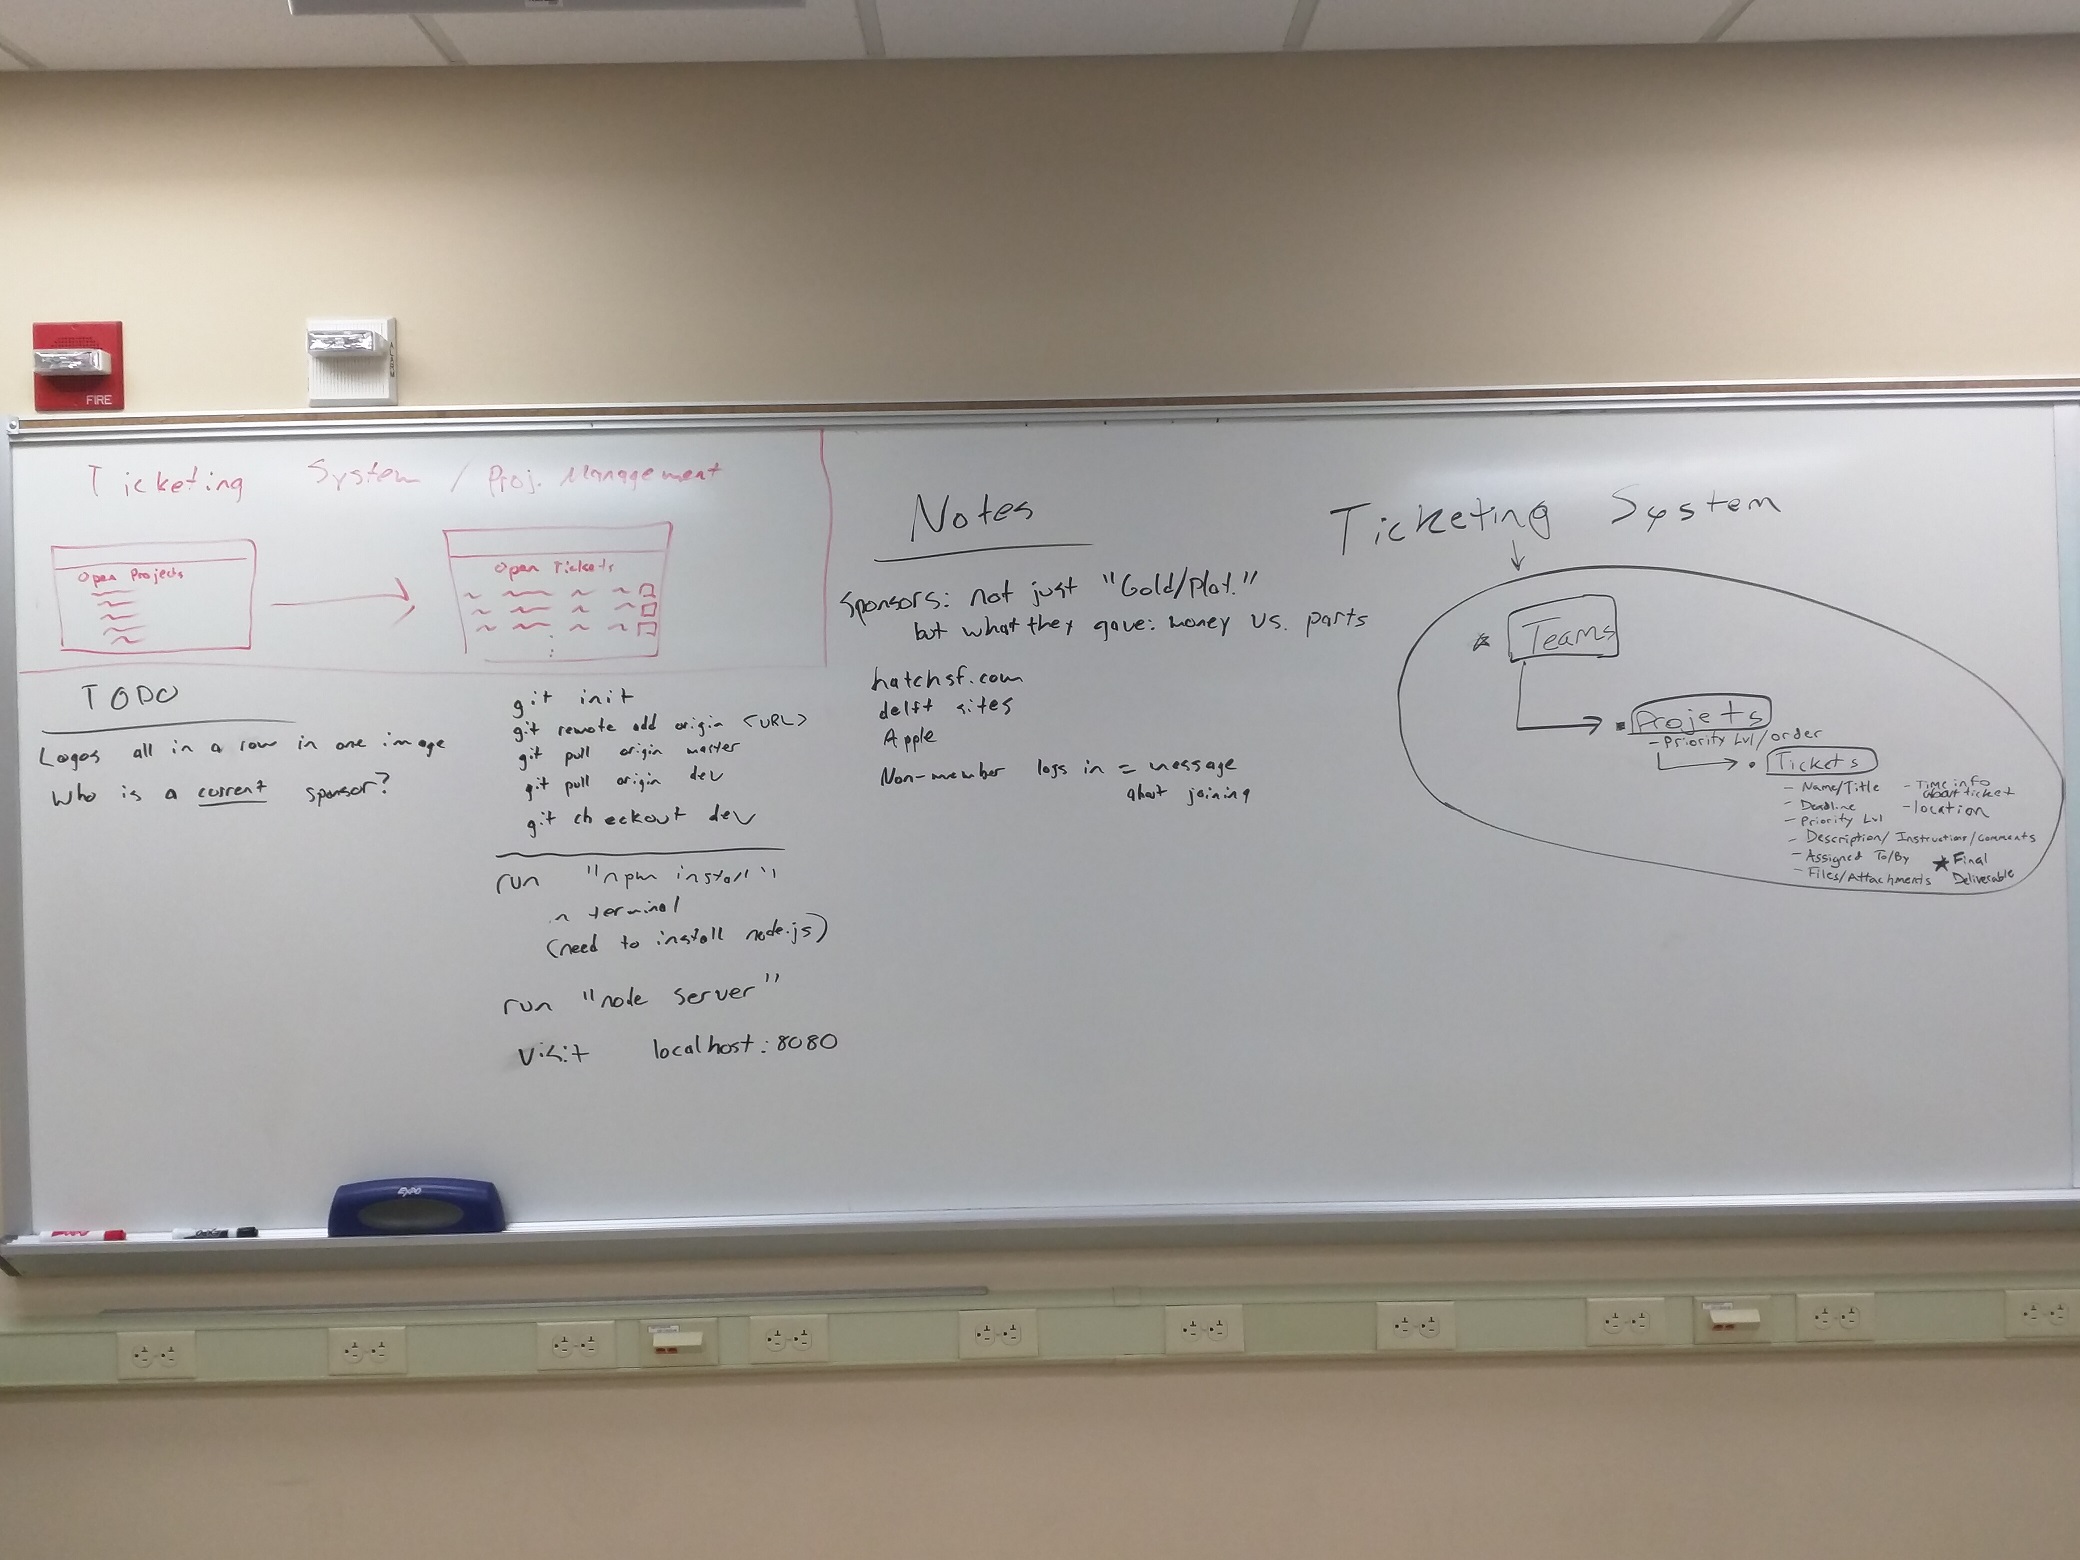 FIRE
ALARM
Ticketing System / Proj. Management
Open Projects
Open Tickets
TODO
Logos all in a row in one image
Who is a current sponsor?
git init
git remote add origin <URL>
git pull origin master
git pull origin dev
git checkout dev
run "npm install"
in terminal
(need to install node.js)
run "node server"
visit localhost:8080
Notes
Sponsors: not just "Gold/Plat."
but what they gave: money vs. parts
hatchsf.com
delft sites
Apple
Non-member logs in = message
about joining
Ticketing System
Teams
Projets
- Priority Lvl/order
Tickets
- Name/Title
- Deadline
- Priority Lvl
- Description/Instructions/Comments
- Assigned To/By
- Files/Attachments
- Time info
about ticket
- location
★ Final
Deliverable
EXPO
EXPO